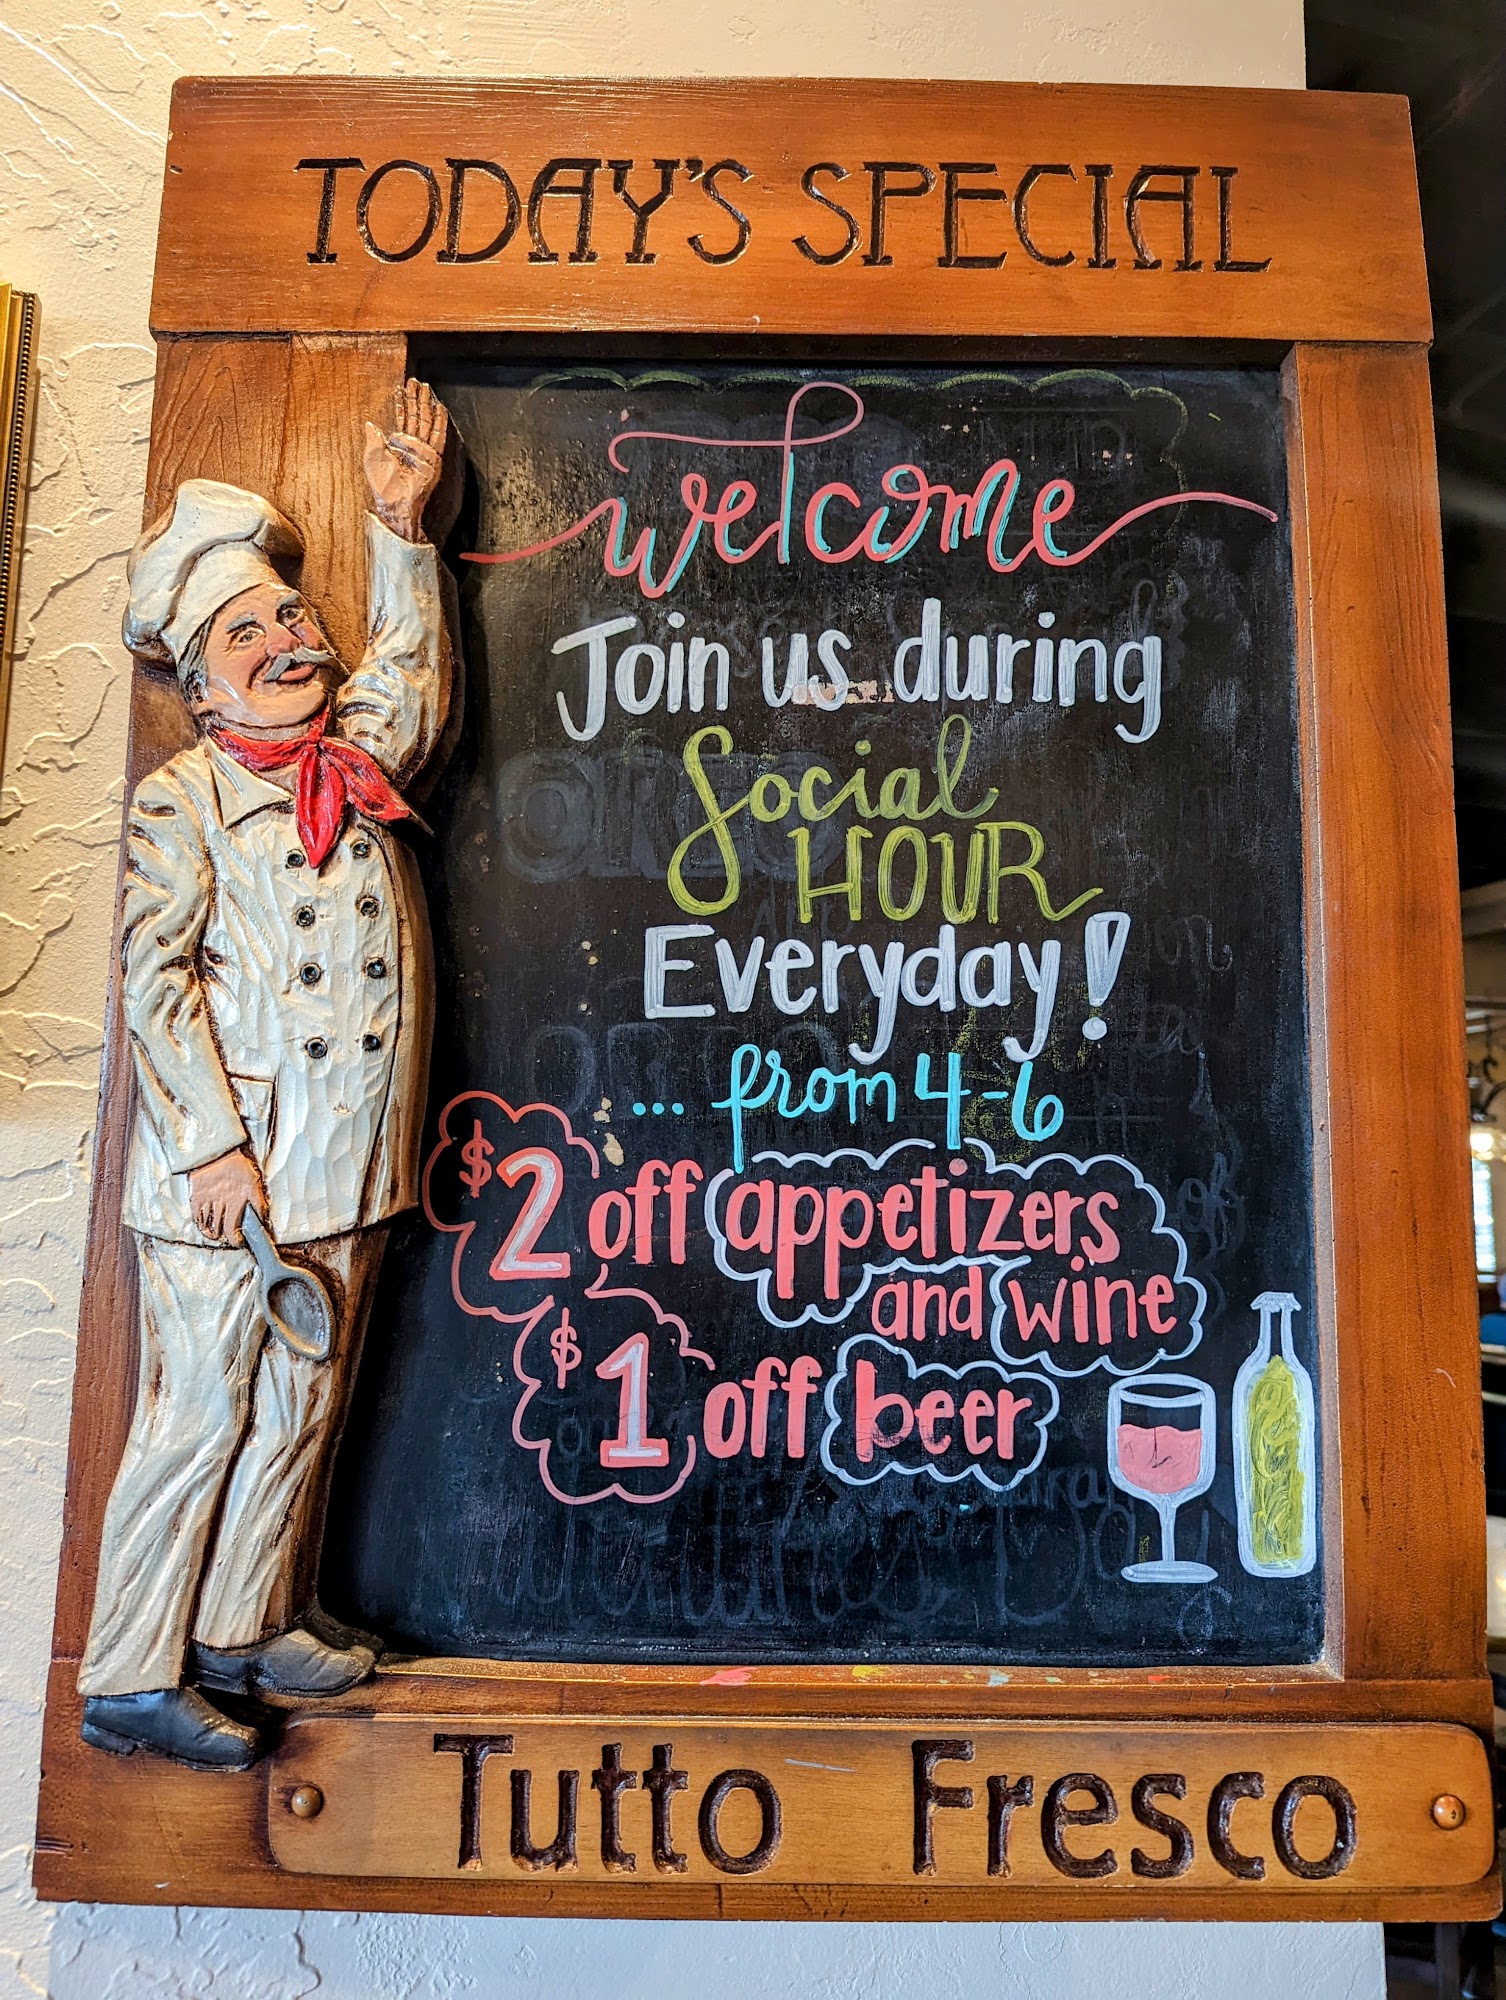 TODAY'S SPECIAL
welcome
Join us during
Social
HOUR
Everyday!
... from 4-6
$2 off appetizers
and wine
$1 off beer
Tutto Fresco